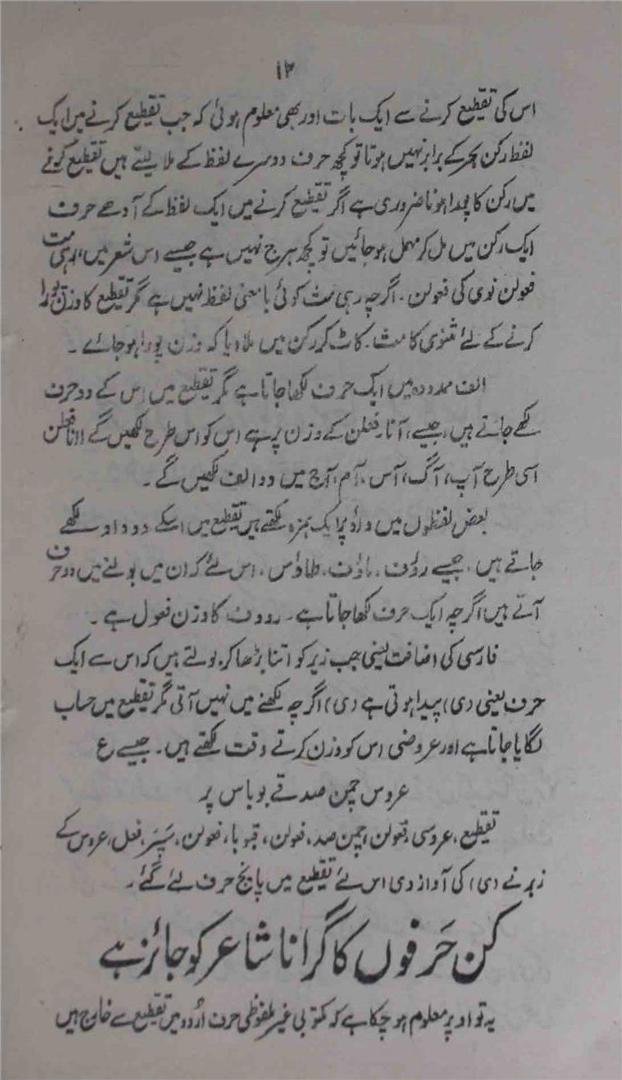 ۱۲
اس کی تقطیع کرنے سے ایک بات اور بھی معلوم ہوئی کہ جب تقطیع کرنے میں ایک
لفظ رکن بحر کے برابر نہیں ہوتا تو کچھ حرف دوسرے لفظ کے ملا لیتے ہیں تقطیع کرنے
میں رکن کا پورا ہونا ضروری ہے اگر تقطیع کرنے میں ایک لفظ کے آدھے حرف
ایک رکن میں مل کر مہمل ہو جائیں تو کچھ ہرج نہیں ہے جیسے اس شعر میں، رہی مث
فعولن نوی کی فعولن ۔ اگرچہ رہی مث کوئی بامعنی لفظ نہیں ہے مگر تقطیع کا وزن پورا
کرنے کے لئے مثنوی کا مث ۔ کاٹ کر رکن میں ملا دیا کہ وزن پورا ہو جائے ۔
الف ممدودہ میں ایک حرف لکھا جاتا ہے مگر تقطیع میں اس کے دو حرف
لکھے جاتے ہیں، جیسے، آنا ۔ فعلن کے وزن پر ہے اس کو اس طرح لکھیں گے ا انا فعلن
اسی طرح آپ، آگ، آس، آم، آج میں دو الف لکھیں گے ۔
بعض لفظوں میں واؤ پر ایک ہمزہ لکھتے ہیں تقطیع میں اسکے دو واو لکھے
جاتے ہیں، جیسے رؤف ۔ طاؤس، اس لئے کہ ان میں بولنے میں دو حرف
آتے ہیں اگرچہ ایک حرف لکھا جاتا ہے ۔ رووف کا وزن فعول ہے ۔
فارسی کی اضافت یعنی جب زیر کو اتنا بڑھا کر بولتے ہیں کہ اس سے ایک
حرف یعنی (ی) پیدا ہوتی ہے (ی) اگرچہ لکھنے میں نہیں آتی مگر تقطیع میں حساب
لگایا جاتا ہے اور عروضی اس کو وزن کرتے وقت لکھتے ہیں ۔ جیسے ع
عروس چمن صدقے بو باس پر
تقطیع، عروسی، فعولن، چمن صد، فعولن، قبو با، فعولن، سپر فعل، عروس کے
زیر نے (ی) کی آواز دی اس لئے تقطیع میں پانچ حرف لئے گئے ۔
کن حَرفوں کا گرانا شاعر کو جائز ہے
یہ تو اوپر معلوم ہو چکا ہے کہ مکتوبی غیر ملفوظی حرف اُردو میں تقطیع سے خارج ہیں